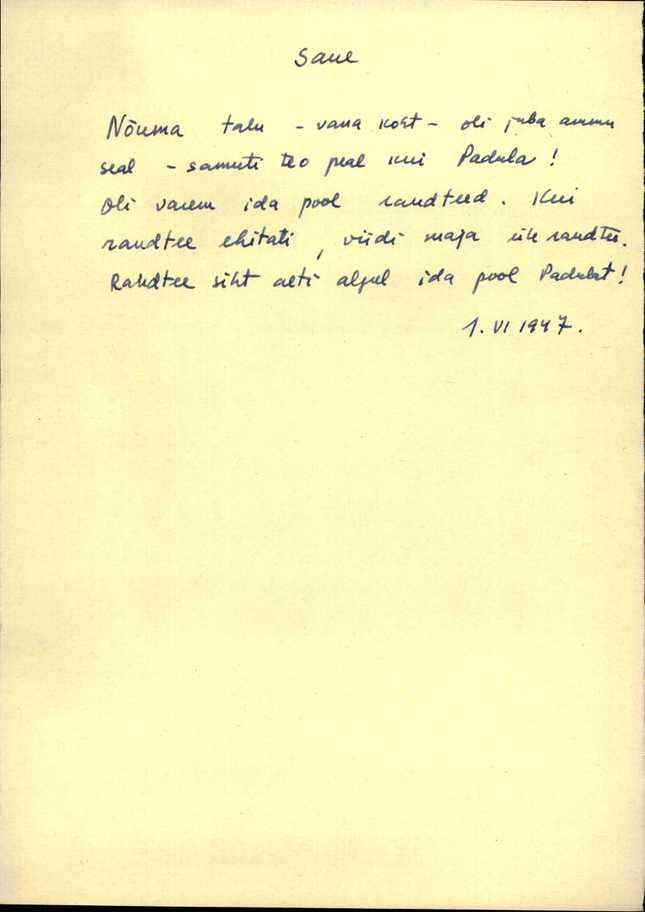 Saue
Nõuma talu - vana koht - oli juba ammu
seal - samuti teo peal kui Padula!
Oli varem ida pool raudteed. Kui
raudtee ehitati, viidi maja üle raudtee.
Raudtee siht aeti algul ida pool Padulat!
1. VI 1947.